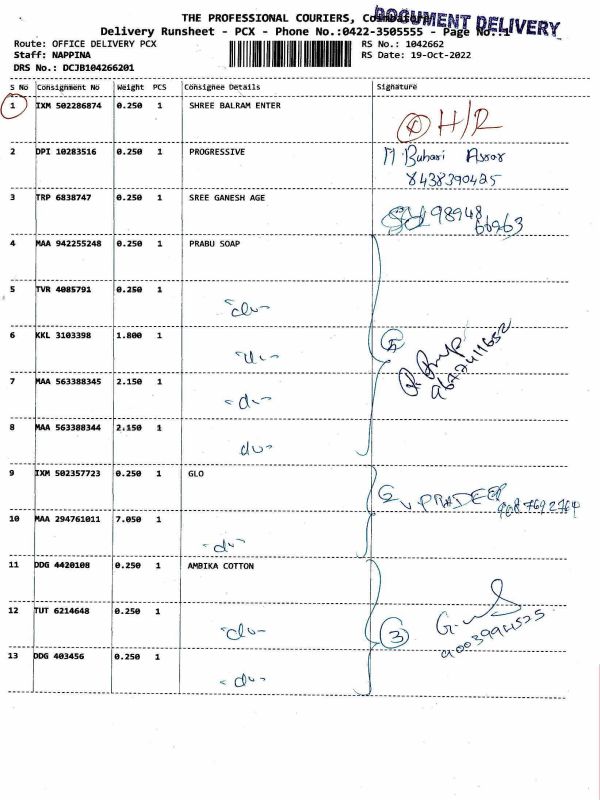 THE PROFESSIONAL COURIERS, Coimbatore
DOCUMENT DELIVERY
Delivery Runsheet - PCX - Phone No.:0422-3505555 - Page No.:1
Route: OFFICE DELIVERY PCX
RS No.: 1042662
Staff: NAPPINA
RS Date: 19-Oct-2022
DRS No.: DCJB104266201
S No Consignment No Weight PCS Consignee Details Signature
1 IXM 502286874 0.250 1 SHREE BALRAM ENTER
H/R
2 DPI 10283516 0.250 1 PROGRESSIVE M. Buhari
8438390425
3 TRP 6838747 0.250 1 SREE GANESH AGE
98948
66263
4 MAA 942255248 0.250 1 PRABU SOAP
5 TVR 4085791 0.250 1
-do-
6 KKL 3103398 1.800 1 5
-do-
7 MAA 563388345 2.150 1
-do-
8 MAA 563388344 2.150 1
-do-
9 IXM 502357723 0.250 1 GLO
2 V PRADEEP
9087692764
10 MAA 294761011 7.050 1
-do-
11 DDG 4420108 0.250 1 AMBIKA COTTON
12 TUT 6214648 0.250 1
-do- 3
13 DDG 403456 0.250 1
-do-